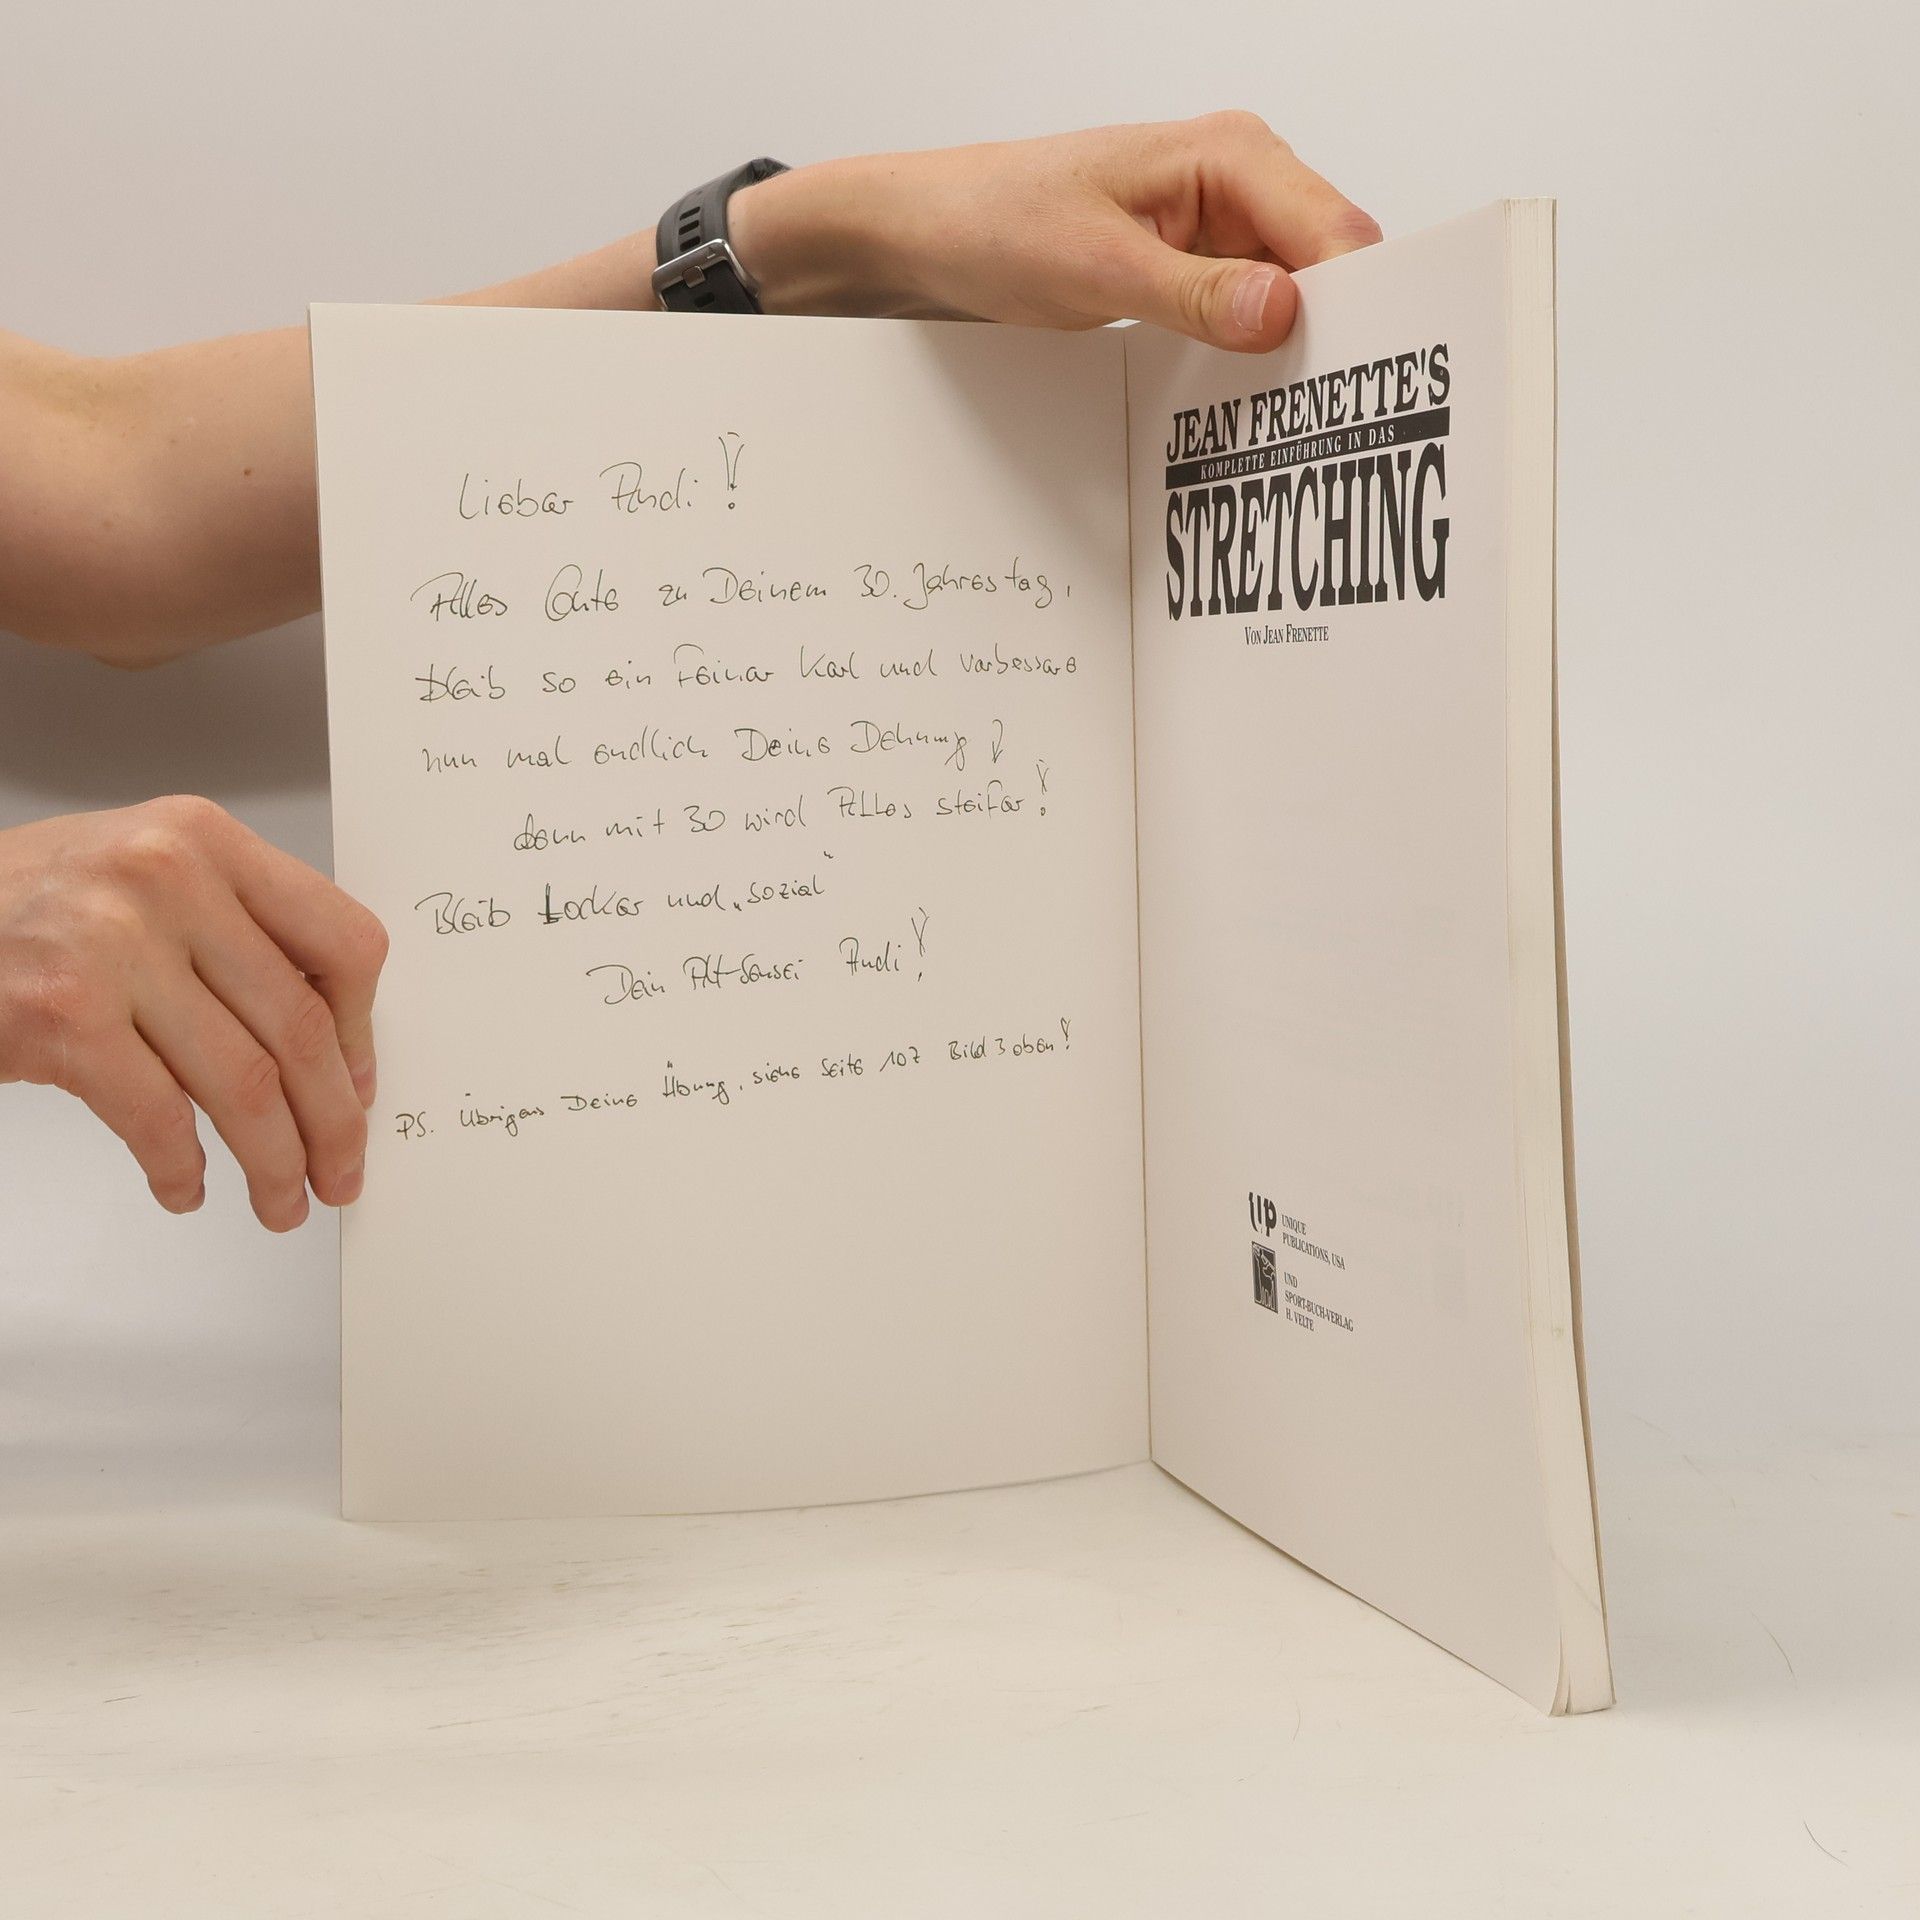 Lieber Andi!
Alles Gute zu Deinem 30. Jahrestag,
bleib so ein Feiner Kerl und verbessere
nun mal endlich Deine Dehnung,
denn mit 30 wird Alles steifer!
Bleib Locker und „sozial“
Dein Alt-Sensei Andi!
PS. Übrigens Deine Übung, siehe Seite 107 Bild 3 oben!
JEAN FRENETTE'S
KOMPLETTE EINFÜHRUNG IN DAS
STRETCHING
VON JEAN FRENETTE
up
UNIQUE
PUBLICATIONS, USA
UND
SPORT-BUCH-VERLAG
H. VELTE